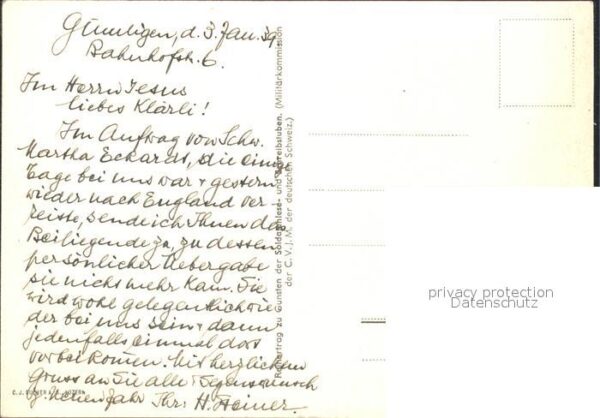 Gümligen, d. 3. Jan. 39.
Bahnhofstr. 6.
Im Herrn Jesus
liebes Klärli!
Im Auftrag von Schw.
Martha Eckardt, die einige
Tage bei uns war + gestern
wieder nach England ver-
reiste, sende ich Ihnen das
Beiliegende ja, zu dessen
persönlicher Uebergabe
sie nicht mehr kam. Sie
wird wohl gelegentlich wie-
der bei uns sein + dann
jedenfalls einmal dort
vorbeikomen. Mit herzlichem
Gruss an Sie alle + Segenswunsch
z. Neuen Jahr Ihr: H.
Reinertrag zu Gunsten der Soldatenlese- und Schreibstuben. (Militärkommission
der C.V.J.M. der deutschen Schweiz.)
C. J. BUCHER A.G. LUZERN
privacy protection
Datenschutz